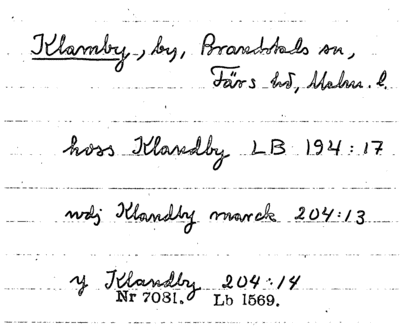 Klamby, by, Brandstads sn,
Färs hd, Malm. l.
hoss Klandby LB 194:17
udj Klandby marck 204:13
y Klandby 204:14
Nr 7081. Lb 1569.